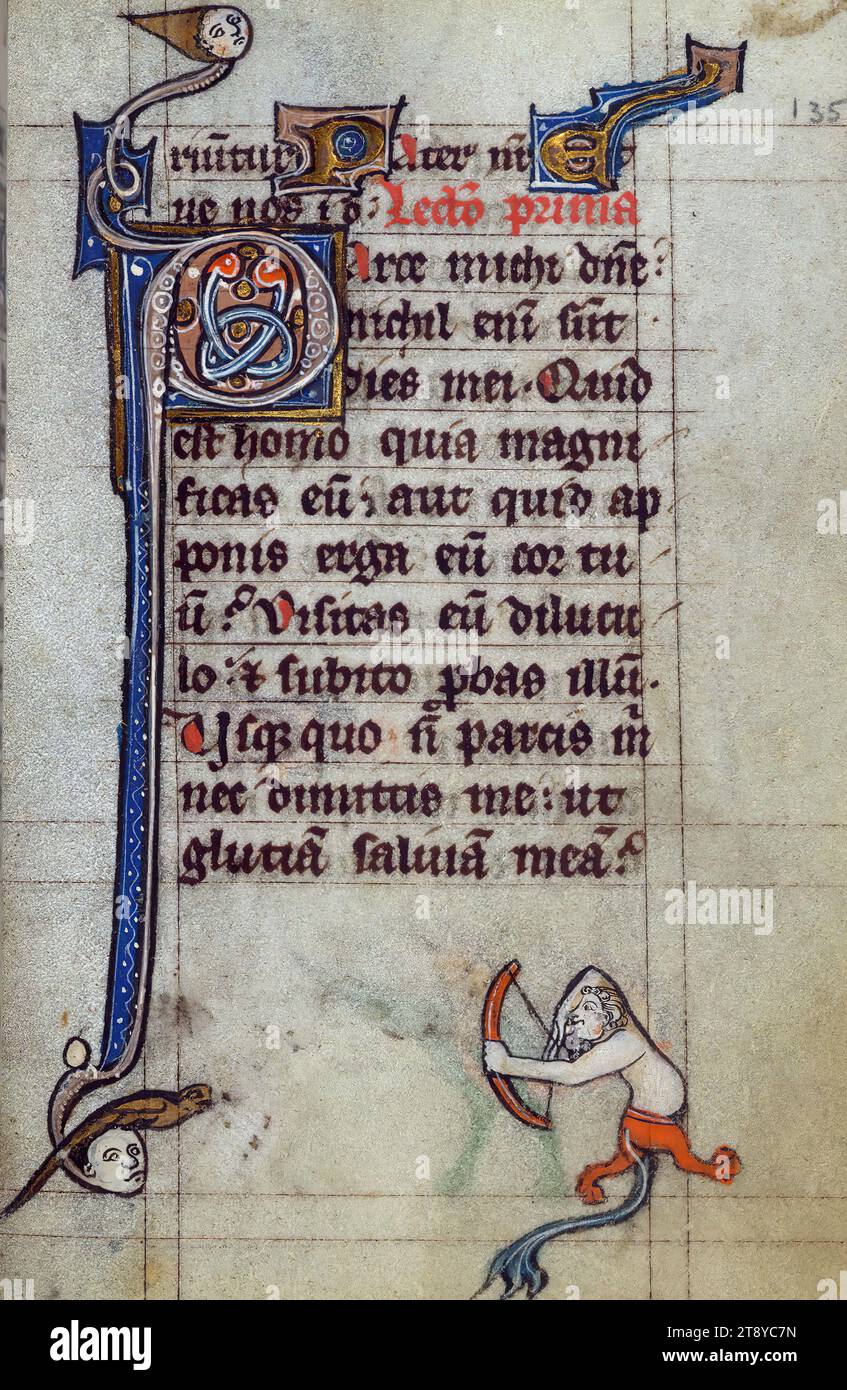 135
riūtur. Pater nr̄ Et
ne nos īd: Lectō prima
Parce michi dn̄e:
nichil enī sūt
dies mei. Quid
est homo quia magni
ficas eū; aut quid ap
ponis erga eū cor tu
ū? Visitas eū dilucu
lo: ⁊ subito ꝓbas illū.
Usq quo n̄ parcis m
nec dimittis me: ut
glutiā salivā meā?
alamy
Image ID: 2T8YC7N
www.alamy.com